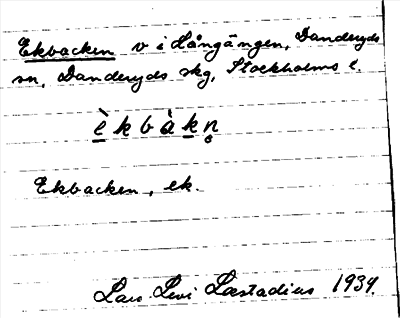 Ekbacken v i Långängen, Danderyds
sn, Danderyds skg, Stockholms l.
è̱ k b à ḵ n̥
Ekbacken, ek.
Lars Levi Læstadius 1934.